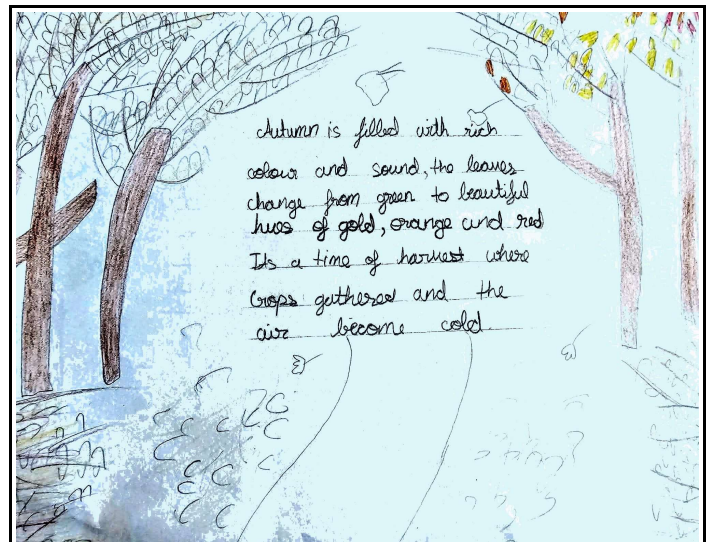 Autumn is filled with rich
colour and sound, the leaves
change from green to beautiful
hues of gold, orange and red
Its a time of harvest where
Crops gathered and the
air become cold.